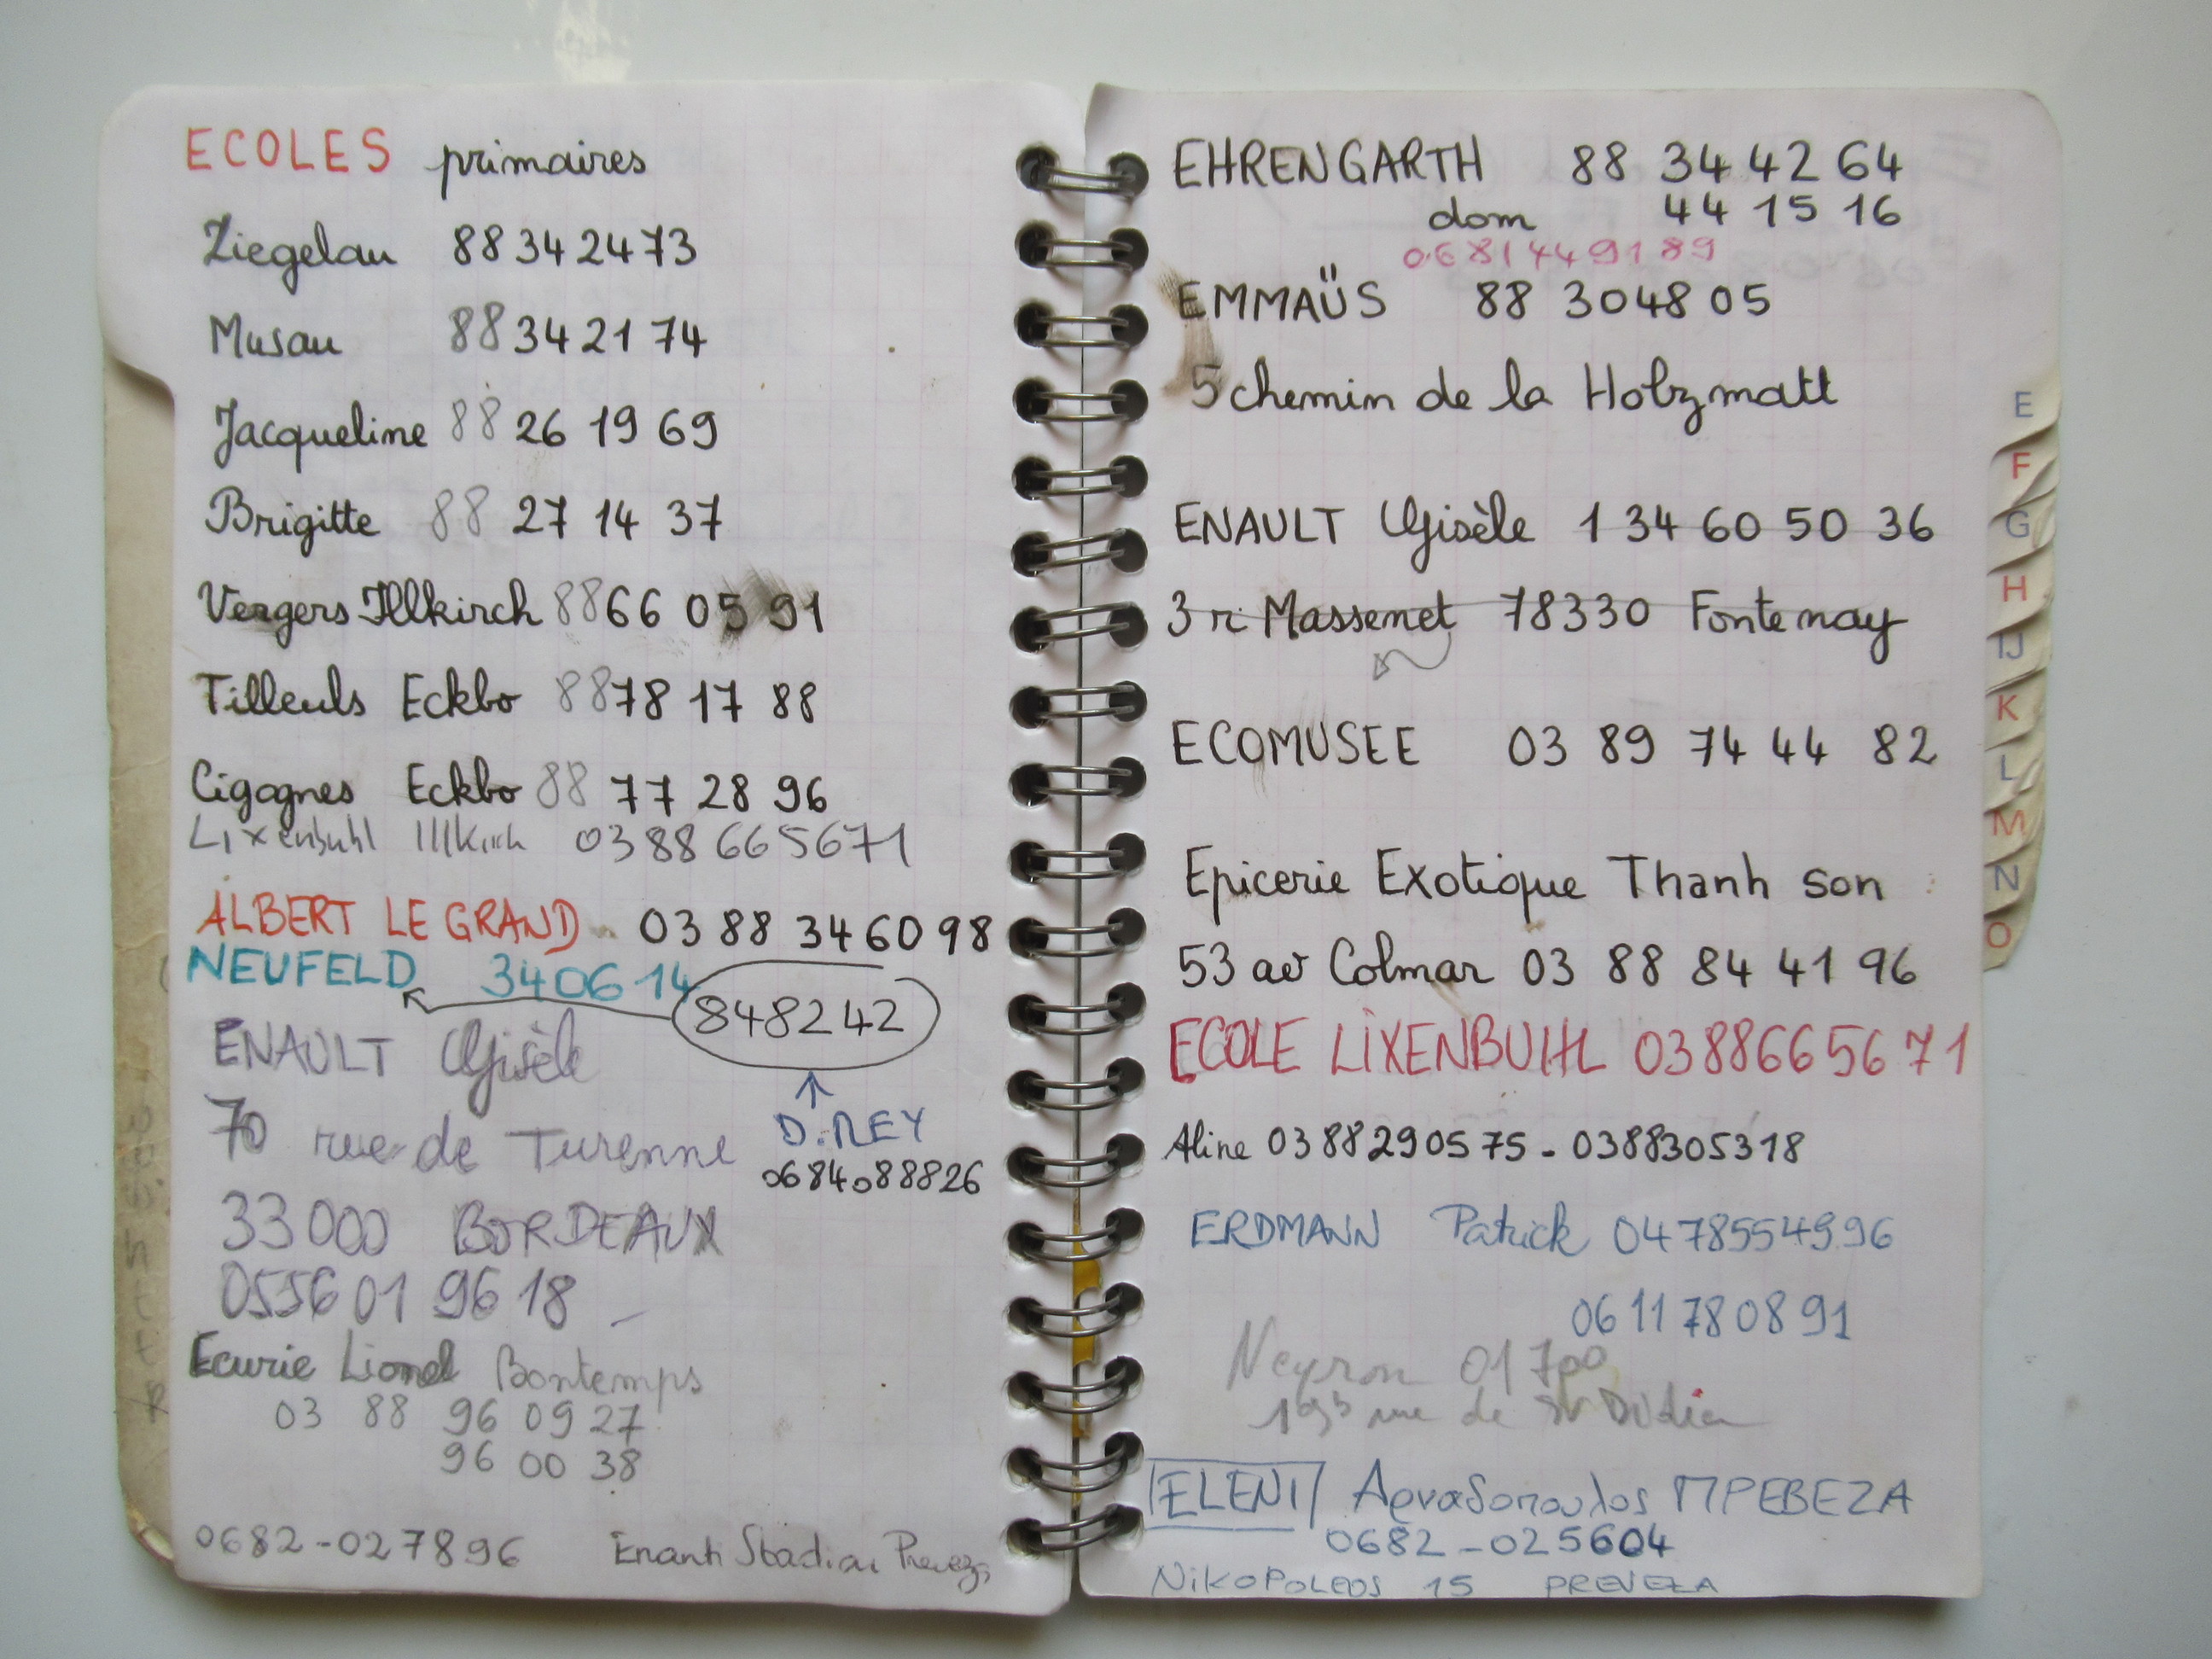 ECOLES primaires
Ziegelau 88 34 24 73
Musau 88 34 21 74
Jacqueline 88 26 19 69
Brigitte 88 27 14 37
Vergers Illkirch 88 66 05 91
Tilleuls Eckbo 88 78 17 88
Cigognes Eckbo 88 77 28 96
Lixenbuhl Illkirch 03 88 66 56 71
ALBERT LE GRAND 03 88 34 60 98
NEUFELD 34 06 14
848242
ENAULT Gisèle
D. REY
70 rue de Turenne
0684088826
33000 BORDEAUX
0556 01 96 18
Ecurie Lionel Bontemps
03 88 96 09 27
96 00 38
0682-027896 Enanti Stadiou
EHRENGARTH 88 34 42 64
dom 44 15 16
0681449189
EMMAÜS 88 30 48 05
5 chemin de la Holzmatt
ENAULT Gisèle 1 34 60 50 36
3 r. Massenet 78330 Fontenay
ECOMUSEE 03 89 74 44 82
Epicerie Exotique Thanh son
53 av Colmar 03 88 84 41 96
ECOLE LIXENBUHL 0388665671
Aline 0388290575 - 0388305318
ERDMANN Patrick 0478554996
06 11 78 08 91
Neyron 01700
rue de St Didier
ELENI Αρναδοπουλος ΠΡΕΒΕΖΑ
0682-025604
NIKOPOLEOS 15 PREVEZA
E
F
G
H
IJ
K
L
M
N
O